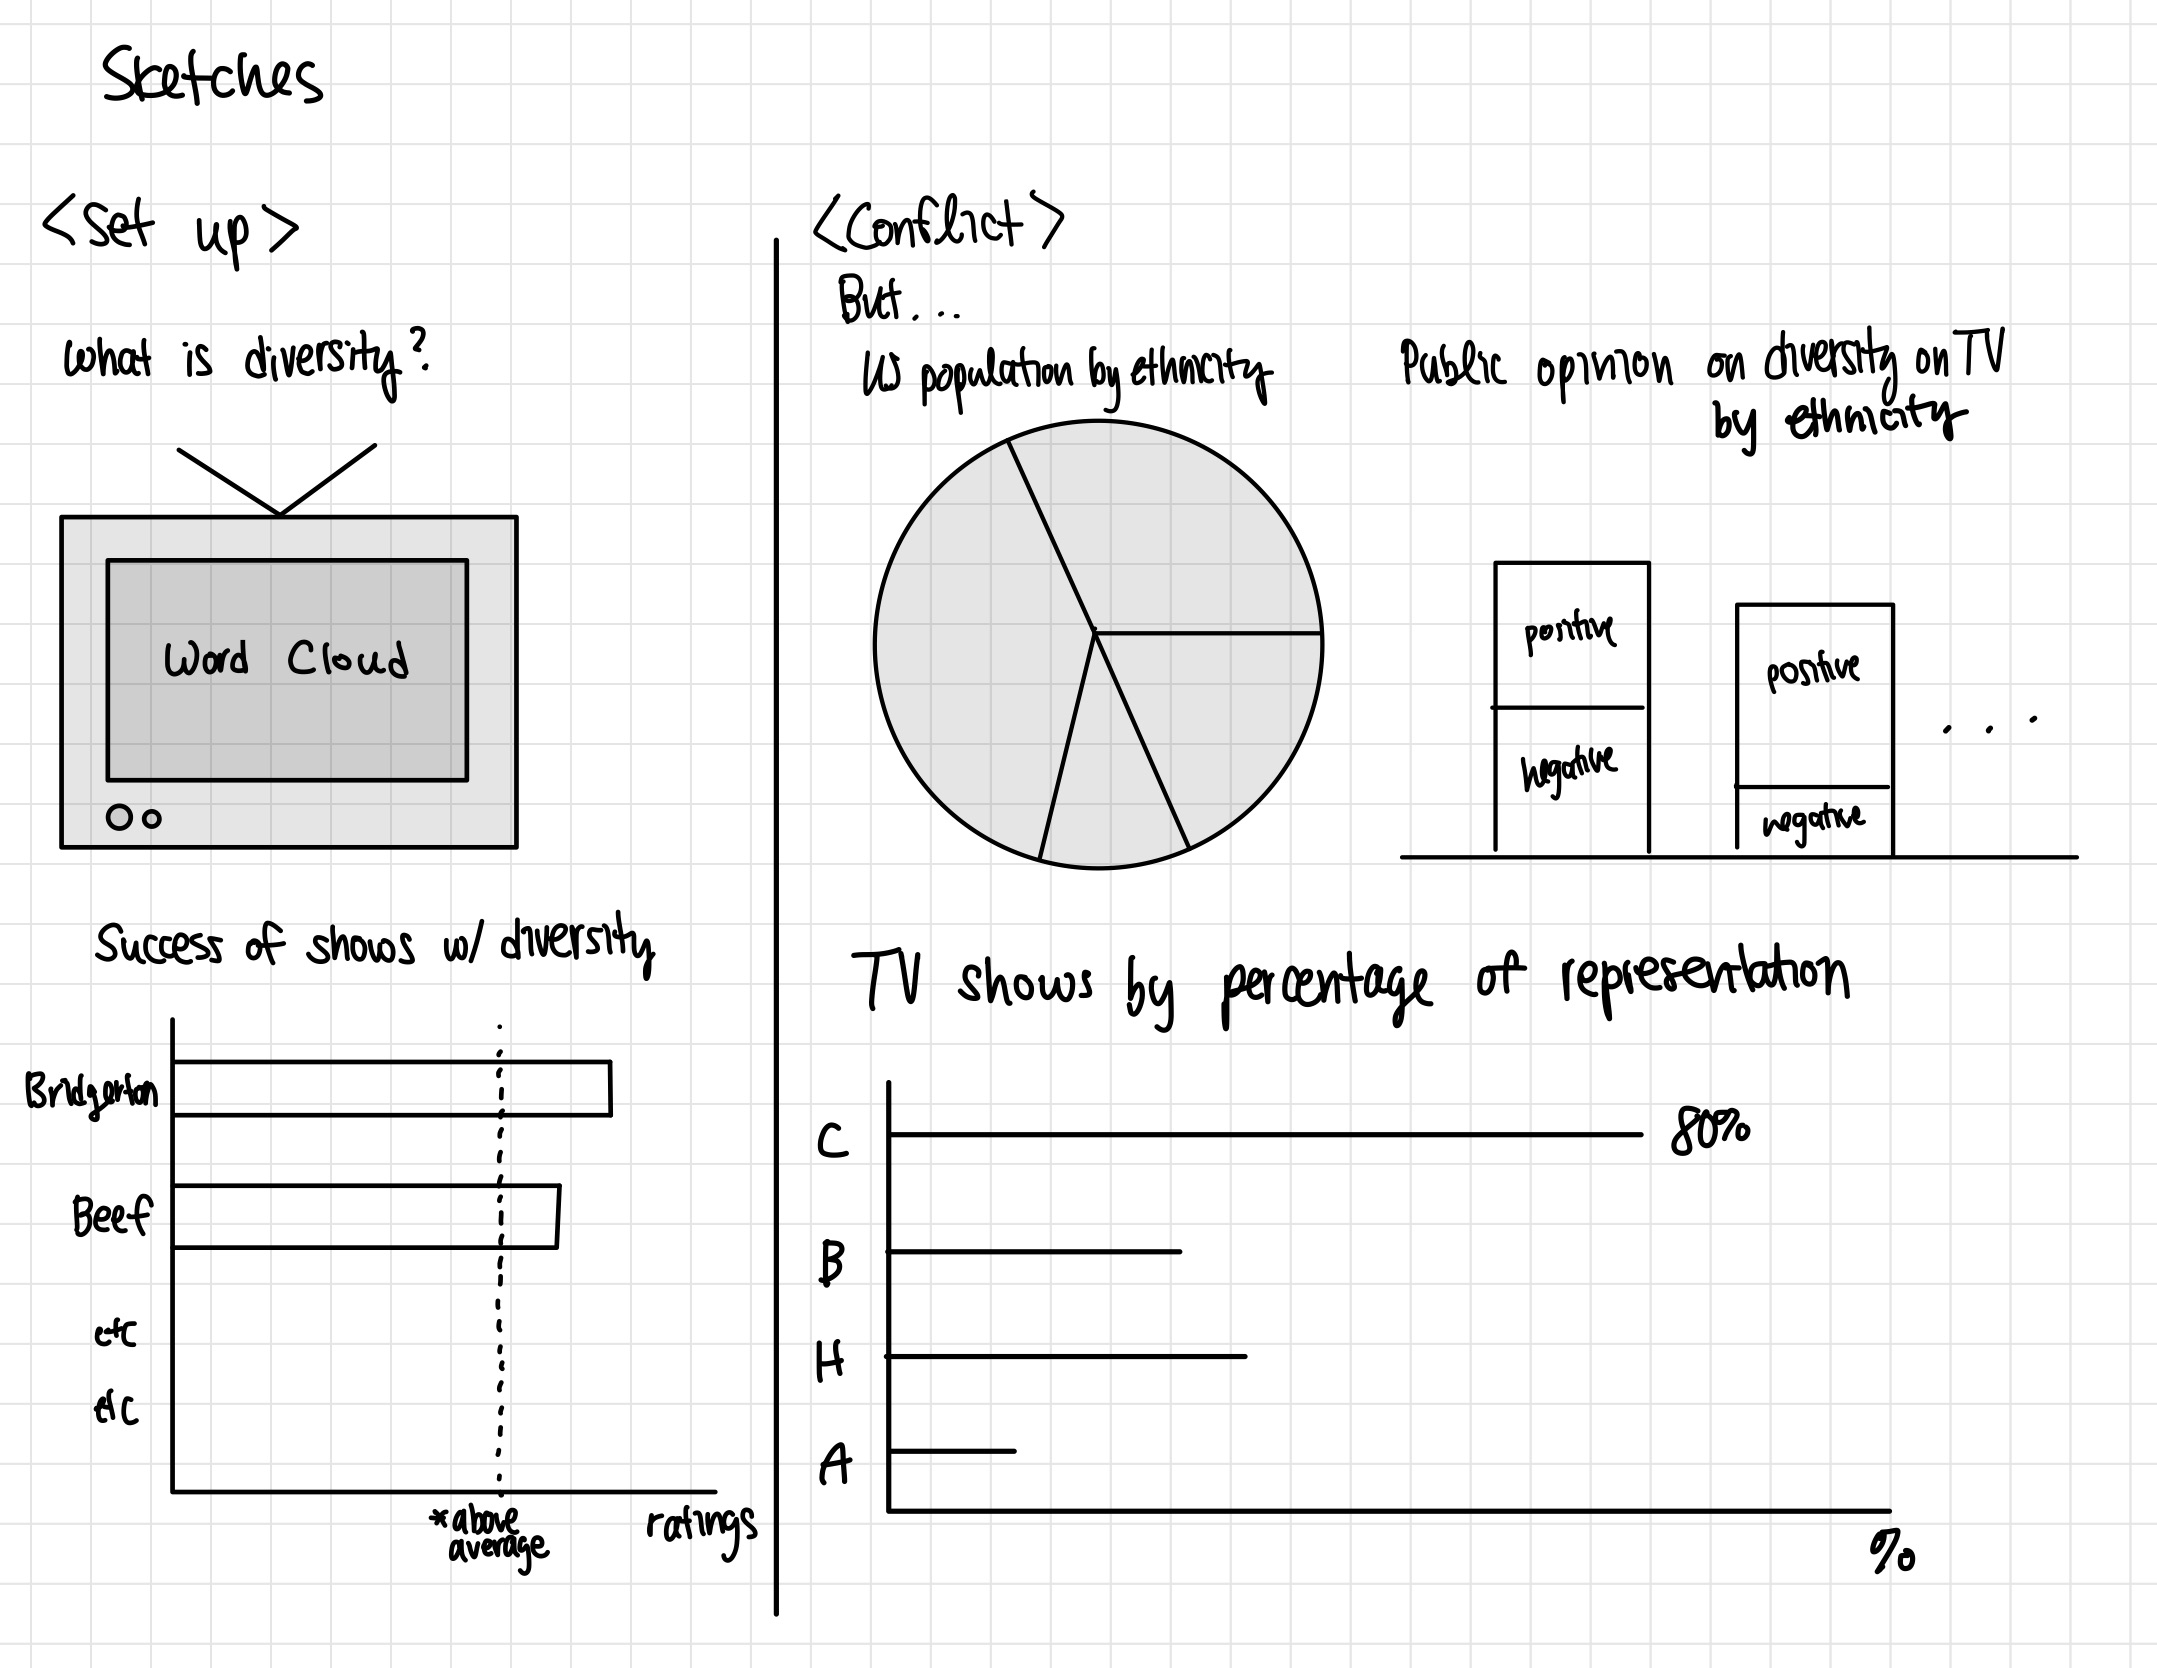 Sketches
<Set up>
What is diversity?
Word Cloud
Success of shows w/ diversity
Bridgerton
Beef
etc
etc
*above
average
ratings
<Conflict>
But...
US population by ethnicity
Public opinion on diversity on TV
by ethnicity
positive
negative
positive
negative
...
TV shows by percentage of representation
C
80%
B
H
A
%